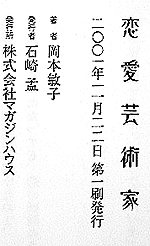 恋愛芸術家
二〇〇一年一一月二二日 第一刷発行
著者 岡本敏子
発行者 石﨑孟
発行所 株式会社マガジンハウス